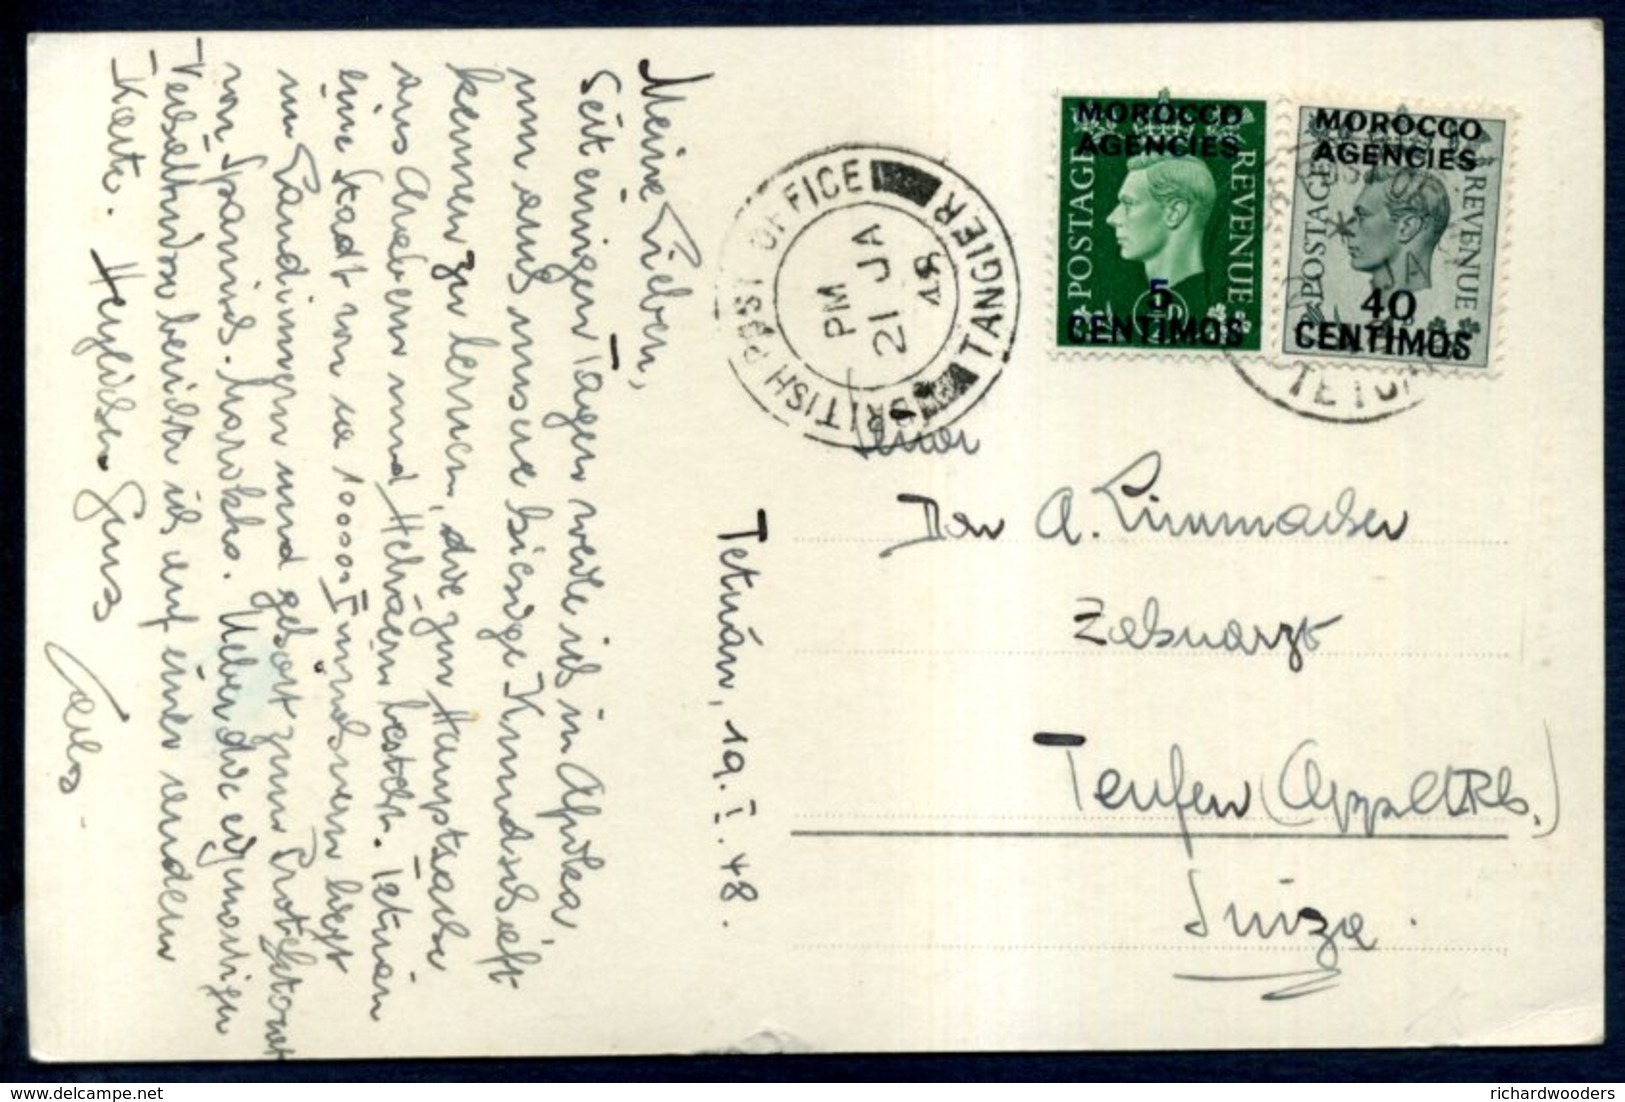 Tetuán, 19.I.48.
Meine Lieben,
Seit einigen Tagen weile ich in Afrika,
um aus unsere hiesige Kundschaft
kennen zu lernen, die zum Hauptsache
aus Arabern und Hebräern besteht. Tetuán
eine Stadt von ca 100000 Einwohnern liegt
im Landinnern und gehört zum Protektorat
von Spanisch-Marokko. Ueber die eigenartigen
Verhältnisse berichte ich auf einer andern
Karte. Herzlichen Gruss
BRITISH POST OFFICE
TANGIER
PM
21 JA
48
MOROCCO
AGENCIES
POSTAGE
REVENUE
5
CENTIMOS
MOROCCO
AGENCIES
POSTAGE
REVENUE
40
CENTIMOS
Señor
Don A. Limmacher
Zahnarzt
Teufen (Appz. A.Rh.)
Suiza
richardwooders